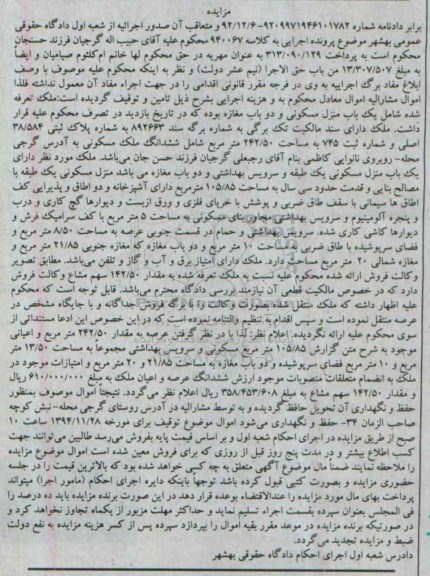 مزایده
برابر دادنامه شماره ۹۲۰۹۹۷۱۹۴۶۱۰۱۷۸۲-۹۲/۱۲/۶ و متعاقب آن صدور اجرائیه از شعبه اول دادگاه حقوقی
عمومی بهشهر موضوع پرونده اجرایی به کلاسه ۹۴۰۰۶۷ محکوم علیه آقای حبیب اله گرجیان فرزند حسنجان
محکوم است به پرداخت ۳۱۳/۰۹۰/۱۲۹ به عنوان مهریه در حق محکوم لها خانم ام‌کلثوم صیامیان و ایضاً
به مبلغ ۱۳/۳۰۷/۵۰۷ من باب حق الاجرا (نیم عشر دولت) و نظر به اینکه محکوم علیه موصوف با وصف
ابلاغ مفاد برگ اجراییه به وی در فرجه مقرر قانونی اقدامی را در جهت اجراء مفاد آن معمول نداشته فلذا
اموال مشارالیه اموال معادل محکوم به و هزینه اجرایی بشرح ذیل تامین و توقیف گردیده است:ملک تعرفه
شده شامل یک باب منزل مسکونی و دو باب مغازه بوده که در تاریخ بازدید در تصرف محکوم علیه قرار
داشت. ملک دارای سند مالکیت تک برگی به شماره برگه سند ۸۹۲۶۶۳ به شماره پلاک ثبتی ۳۸/۵۸۴
اصلی و شماره ثبت ۷۴۵ به مساحت ۲۴۲/۵۰ متر مربع شامل ششدانگ ملک مسکونی به آدرس گرجی
محله- روبروی نانوایی کاظمی بنام آقای رجبعلی گرجیان فرزند حسن جان می‌باشد. ملک مورد نظر دارای
یک باب منزل مسکونی یک طبقه و سرویس بهداشتی و دو باب مغازه می باشد منزل مسکونی یک طبقه با
مصالح بنایی و قدمت حدود سی سال به مساحت ۱۰۵/۸۵ مترمربع دارای آشپزخانه و دو اطاق و پذیرایی کف
اطاق ها سیمانی با سقف طاق ضربی و پوشش با خرپای فلزی و ورق ایزست و دیوارها گچ کاری و درب
و پنجره آلومینیوم و سرویس بهداشتی مجاور بنای مسکونی به مساحت ۵ متر مربع با کف سرامیک فرش و
دیوارها کاشی کاری شده . سرویس بهداشتی و حمام در قسمت جنوبی عرصه به مساحت ۸/۵۰ متر مربع و
فضای سرپوشیده با طاق ضربی به مساحت ۱۰ متر مربع و دو باب مغازه که مغازه جنوبی ۲۱/۸۵ متر مربع و
مغازه شمالی ۲۰ متر مربع مساحت دارد. ملک دارای امتیاز برق و آب و گاز و تلفن می‌باشد. مطابق تصویر
وکالت فروش ارائه شده محکوم علیه نسبت به ملک تعرفه شده به مقدار ۱۴۲/۵۰ سهم مشاع وکالت فروش
دارد که در خصوص مالکیت قطعی آن نیازمند بررسی دادگاه محترم می‌باشد. قابل توجه است که محکوم
علیه اظهار داشته که ملک منتقل شده بصورت وکالت نامه برگه فروش جداگانه و با جایگاه مشخص در
عرصه منتقل نموده است و سپس اقدام به تنظیم وکالتنامه نموده است که در این خصوص این ادعا مستنداتی از
سوی محکوم علیه ارائه نگردیده. اعلام نظر: لذا با در نظر گرفتن عرصه به مقدار ۲۴۲/۵۰ متر مربع و اعیانی
موجود به شرح متن گزارش ۱۰۵/۸۵ متر مربع مسکونی و سرویس بهداشتی مجموعاً به مساحت ۱۳/۵۰ متر
مربع و ۱۰ متر مربع فضای سرپوشیده و دو باب مغازه به مساحت ۲۱/۸۵ و ۲۰ متر مربع و امتیازات موجود در
ملک به انضمام متعلقات منصوبات موجود ارزش ششدانگ عرصه و اعیان ملک به مبلغ ۶۱۰/۰۰۰/۰۰۰ ریال
و مقدار ۱۴۲/۵۰ سهم مشاع به مبلغ ۳۵۸/۴۵۳/۶۰۸ ریال اعلام نظر می‌گردد. نتیجتاً اموال موصوف بمنظور
حفظ و نگهداری آن تحویل حافظ گردیده و به توسط مشارالیه در آدرس روستای گرجی محله- نبش کوچه
صاحب الزمان ۳۴- حفظ و نگهداری می‌شود اموال موضوع توقیف برای مورخه ۱۳۹۴/۱۱/۲۸ ساعت ۱۰
صبح از طریق مزایده در اجرای احکام شعبه اول و بر اساس قیمت پایه بفروش می‌رسد طالبین می‌توانند جهت
کسب اطلاع بیشتر و در مدت پنج روز قبل از روزی که برای فروش معین شده است اموال موضوع مزایده
را ملاحظه نمایند ضمناً مال موضوع آگهی متعلق به چه کسی خواهد شده بود که بالاترین قیمت را در جلسه
حضوری مزایده و بصورت کتبی قبول کرده باشد توجها باینکه دایره اجرای احکام (مامور اجرا) میتواند
پرداخت بهای مال مورد مزایده را عندالاقتضاء بوعده قرار دهد در این صورت برنده مزایده باید ده درصد را
فی المجلس بعنوان سپرده بقسمت اجراء تسلیم نماید و حداکثر مهلت مزبور از یکماه تجاوز نخواهد کرد و
در صورتیکه برنده مزایده در موعد مقرر بقیه اموال را نپردازد سپرده پس از کسر هزینه مزایده به نفع دولت
ضبط و مزایده تجدید می‌گردد.
دادرس شعبه اول اجرای احکام دادگاه حقوقی بهشهر